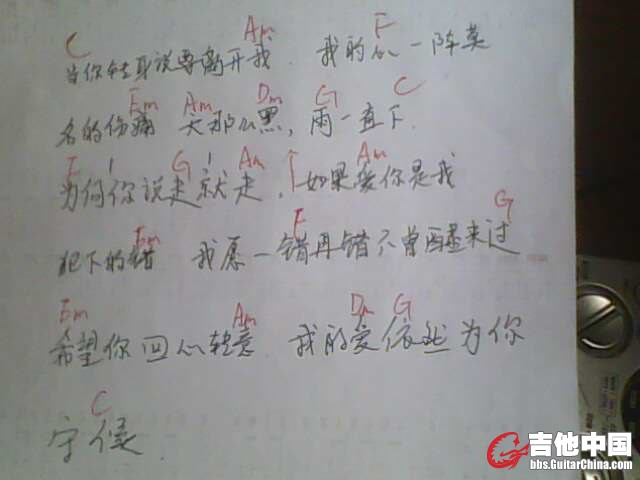 C Am F
当你转身说要离开我 我的心一阵莫
Em Am Dm G C
名的伤痛 天那么黑,雨一直下
F G Am Am
为何你说走就走,如果爱你是我
Em F G
犯下的错 我愿一错再错不曾醒来过
Em Am Dm G
希望你回心转意 我的爱依然为你
C
守候.
吉他中国
bbs.GuitarChina.com